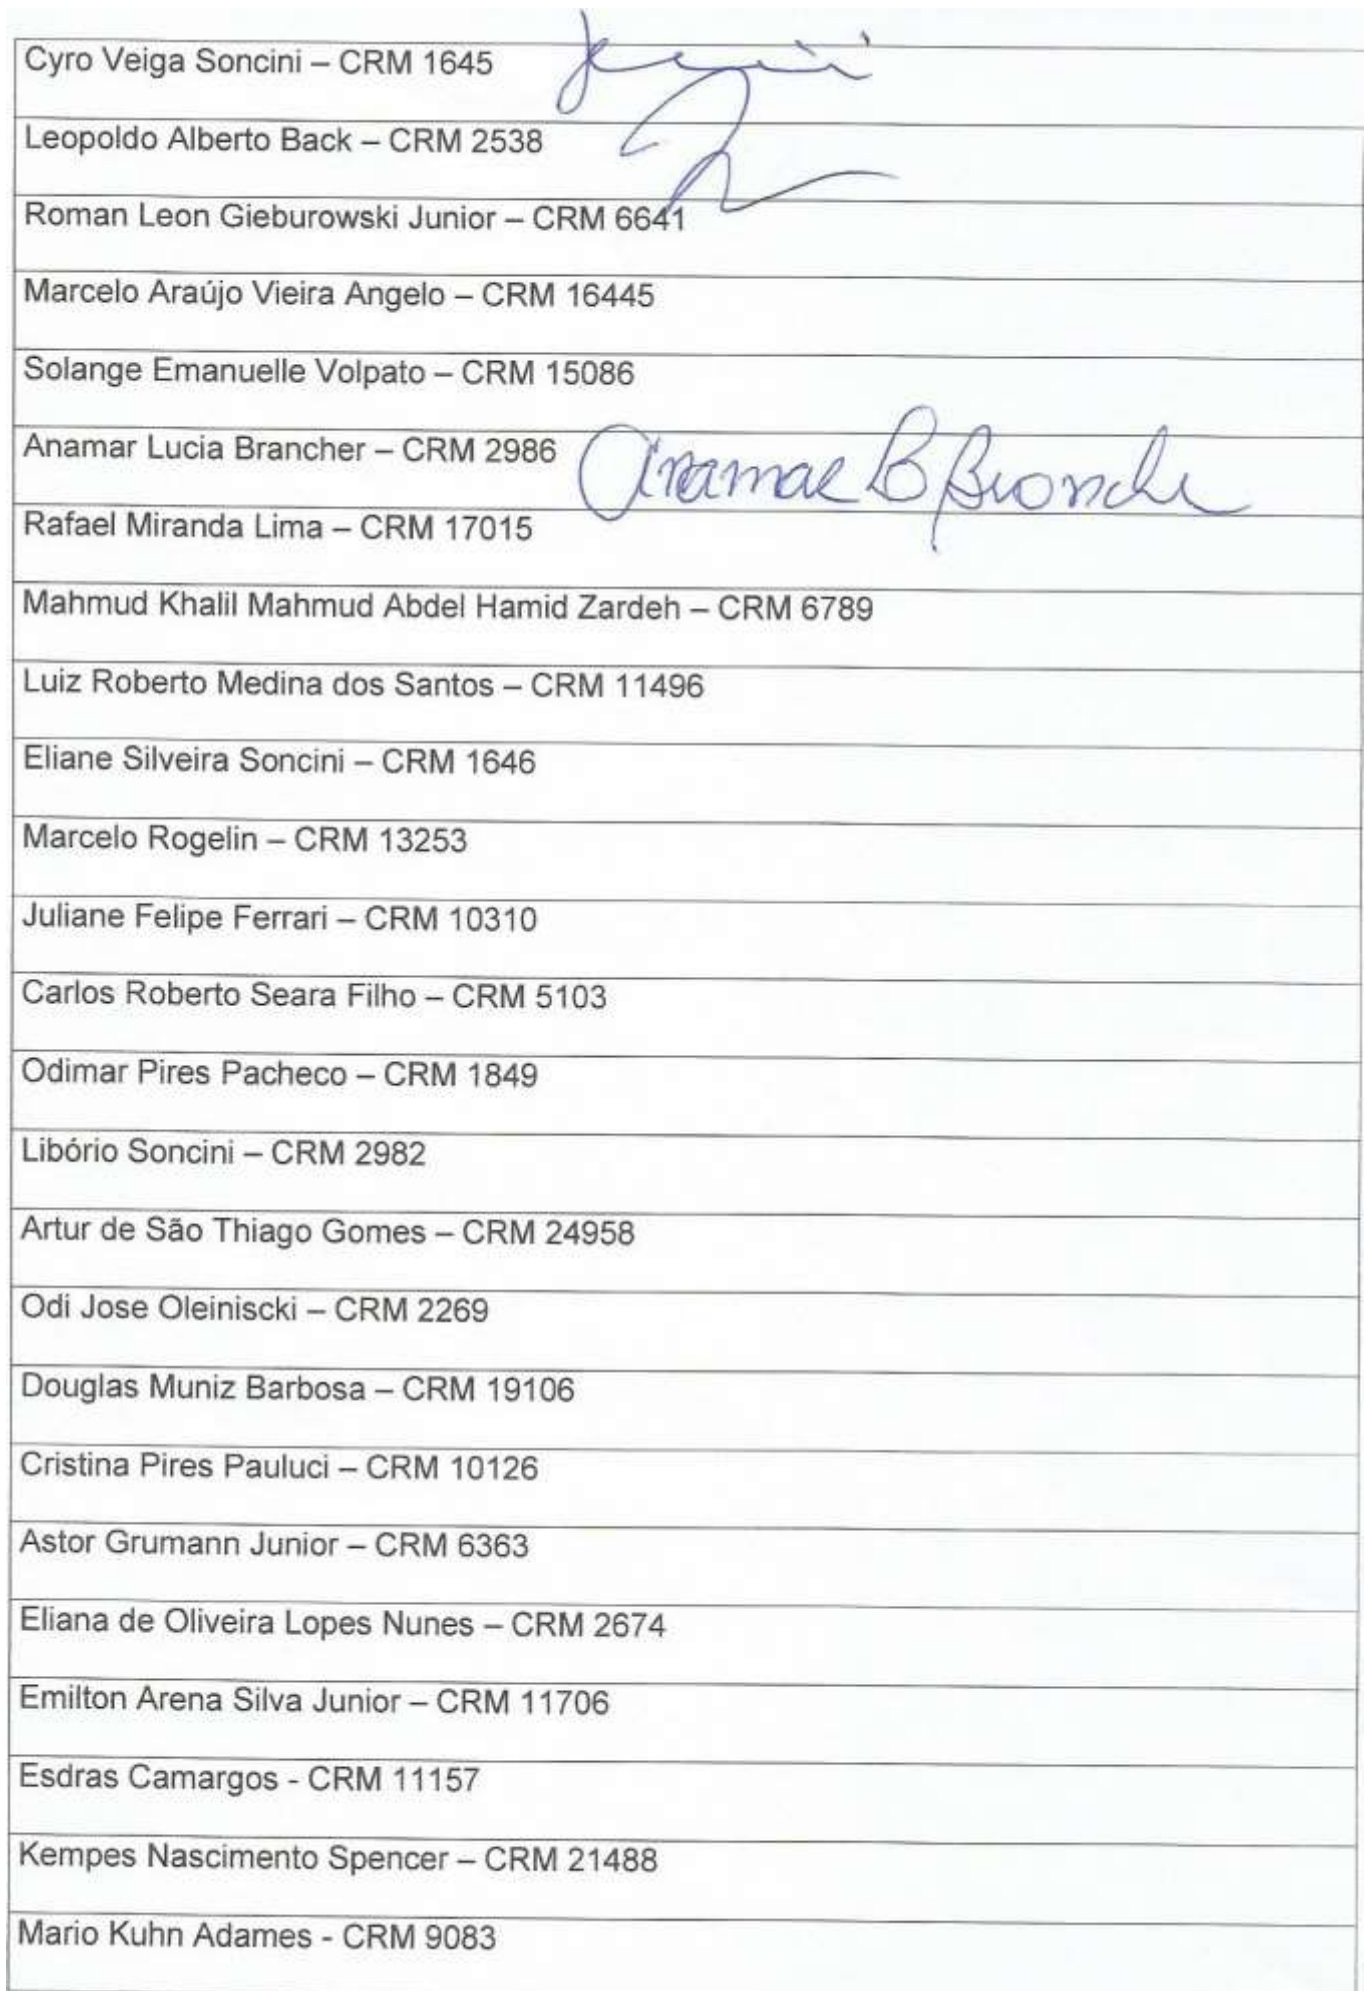 Cyro Veiga Soncini – CRM 1645
Leopoldo Alberto Back – CRM 2538
Roman Leon Gieburowski Junior – CRM 6641
Marcelo Araújo Vieira Angelo – CRM 16445
Solange Emanuelle Volpato – CRM 15086
Anamar Lucia Brancher – CRM 2986 Anamar B
Rafael Miranda Lima – CRM 17015
Mahmud Khalil Mahmud Abdel Hamid Zardeh – CRM 6789
Luiz Roberto Medina dos Santos – CRM 11496
Eliane Silveira Soncini – CRM 1646
Marcelo Rogelin – CRM 13253
Juliane Felipe Ferrari – CRM 10310
Carlos Roberto Seara Filho – CRM 5103
Odimar Pires Pacheco – CRM 1849
Libório Soncini – CRM 2982
Artur de São Thiago Gomes – CRM 24958
Odi Jose Oleiniscki – CRM 2269
Douglas Muniz Barbosa – CRM 19106
Cristina Pires Pauluci – CRM 10126
Astor Grumann Junior – CRM 6363
Eliana de Oliveira Lopes Nunes – CRM 2674
Emilton Arena Silva Junior – CRM 11706
Esdras Camargos - CRM 11157
Kempes Nascimento Spencer – CRM 21488
Mario Kuhn Adames - CRM 9083